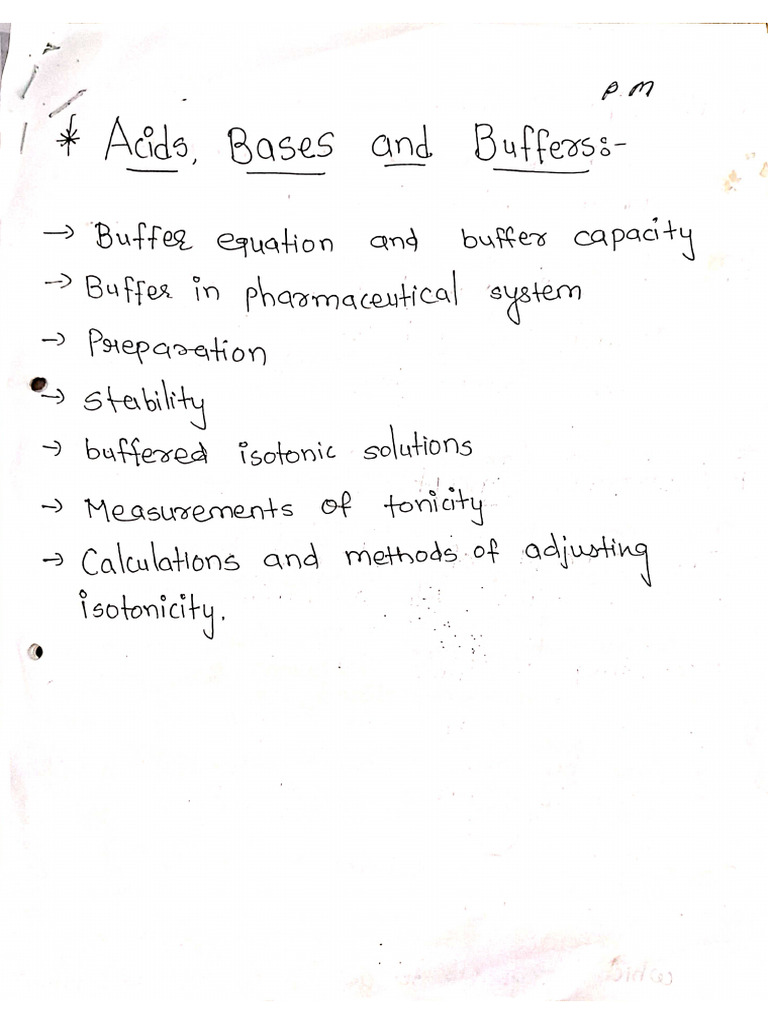 P.M
* Acids, Bases and Buffers:-
→ Buffer equation and buffer capacity
→ Buffer in pharmaceutical system
→ Preparation
→ stability
→ buffered isotonic solutions
→ Measurements of tonicity
→ Calculations and methods of adjusting
isotonicity.